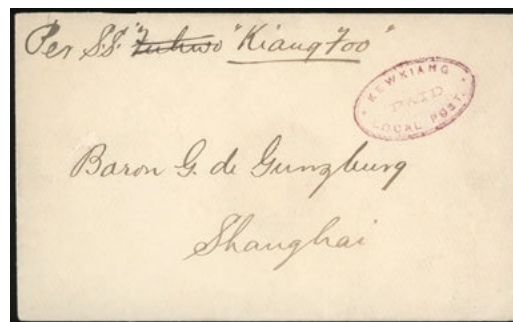 Per S.S. "Tuhwo" "Kiang Foo"
KEWKIANG
PAID
LOCAL POST.
Baron G. de Gunzburg
Shanghai